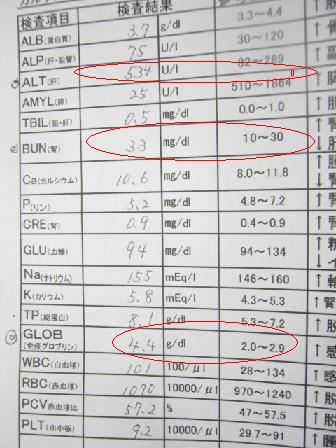 検査項目 検査結果
ALB(蛋白質) 3.7 g/dl 3.3~4.4
ALP(肝・胆管) 75 U/l 30~120
ALT(肝) 534 U/l 82~289
AMYL(膵) 25 U/l 510~1864
TBIL(胆・肝) 0.5 mg/dl 0.0~1.0
BUN(腎) 33 mg/dl 10~30
Ca(カルシウム) 10.6 mg/dl 8.0~11.8
P(リン) 5.2 mg/dl 4.8~7.2
CRE(腎) 0.9 mg/dl 0.4~0.9
GLU(血糖) 94 mg/dl 94~134
Na(ナトリウム) 155 mEq/l 146~160
K(カリウム) 5.8 mEq/l 4.3~5.3
TP(総蛋白) 8.1 g/dl 5.3~7.2
GLOB
(免疫グロブリン) 4.4 g/dl 2.0~2.9
WBC(白血球) 101 100/μl 28~134
RBC(赤血球) 1070 10000/μl 970~1240
PCV(赤血球比) 57.2 % 47~57.5
PLT(血小板) 9.2 10000/μl 29.7~91